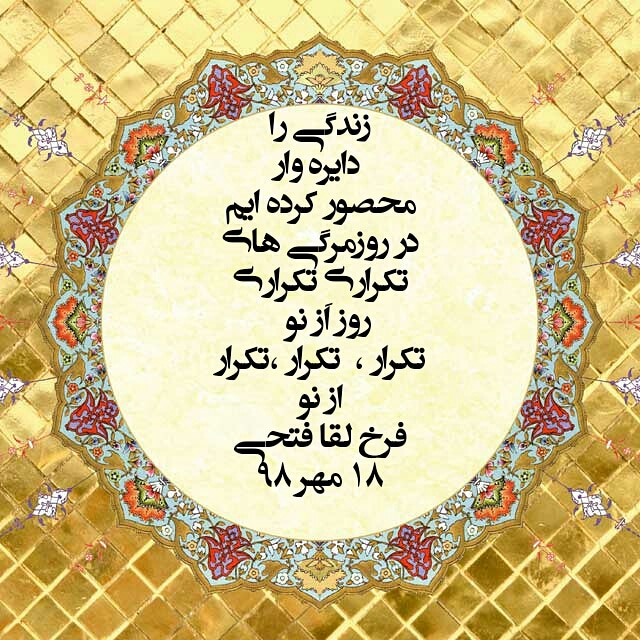 زندگی را
دایره وار
محصور کرده ایم
در روزمرگی های
تکراری تکراری
روز از نو
تکرار ، تکرار ،تکرار
از نو
فرخ لقا فتحی
۱۸ مهر ۹۸